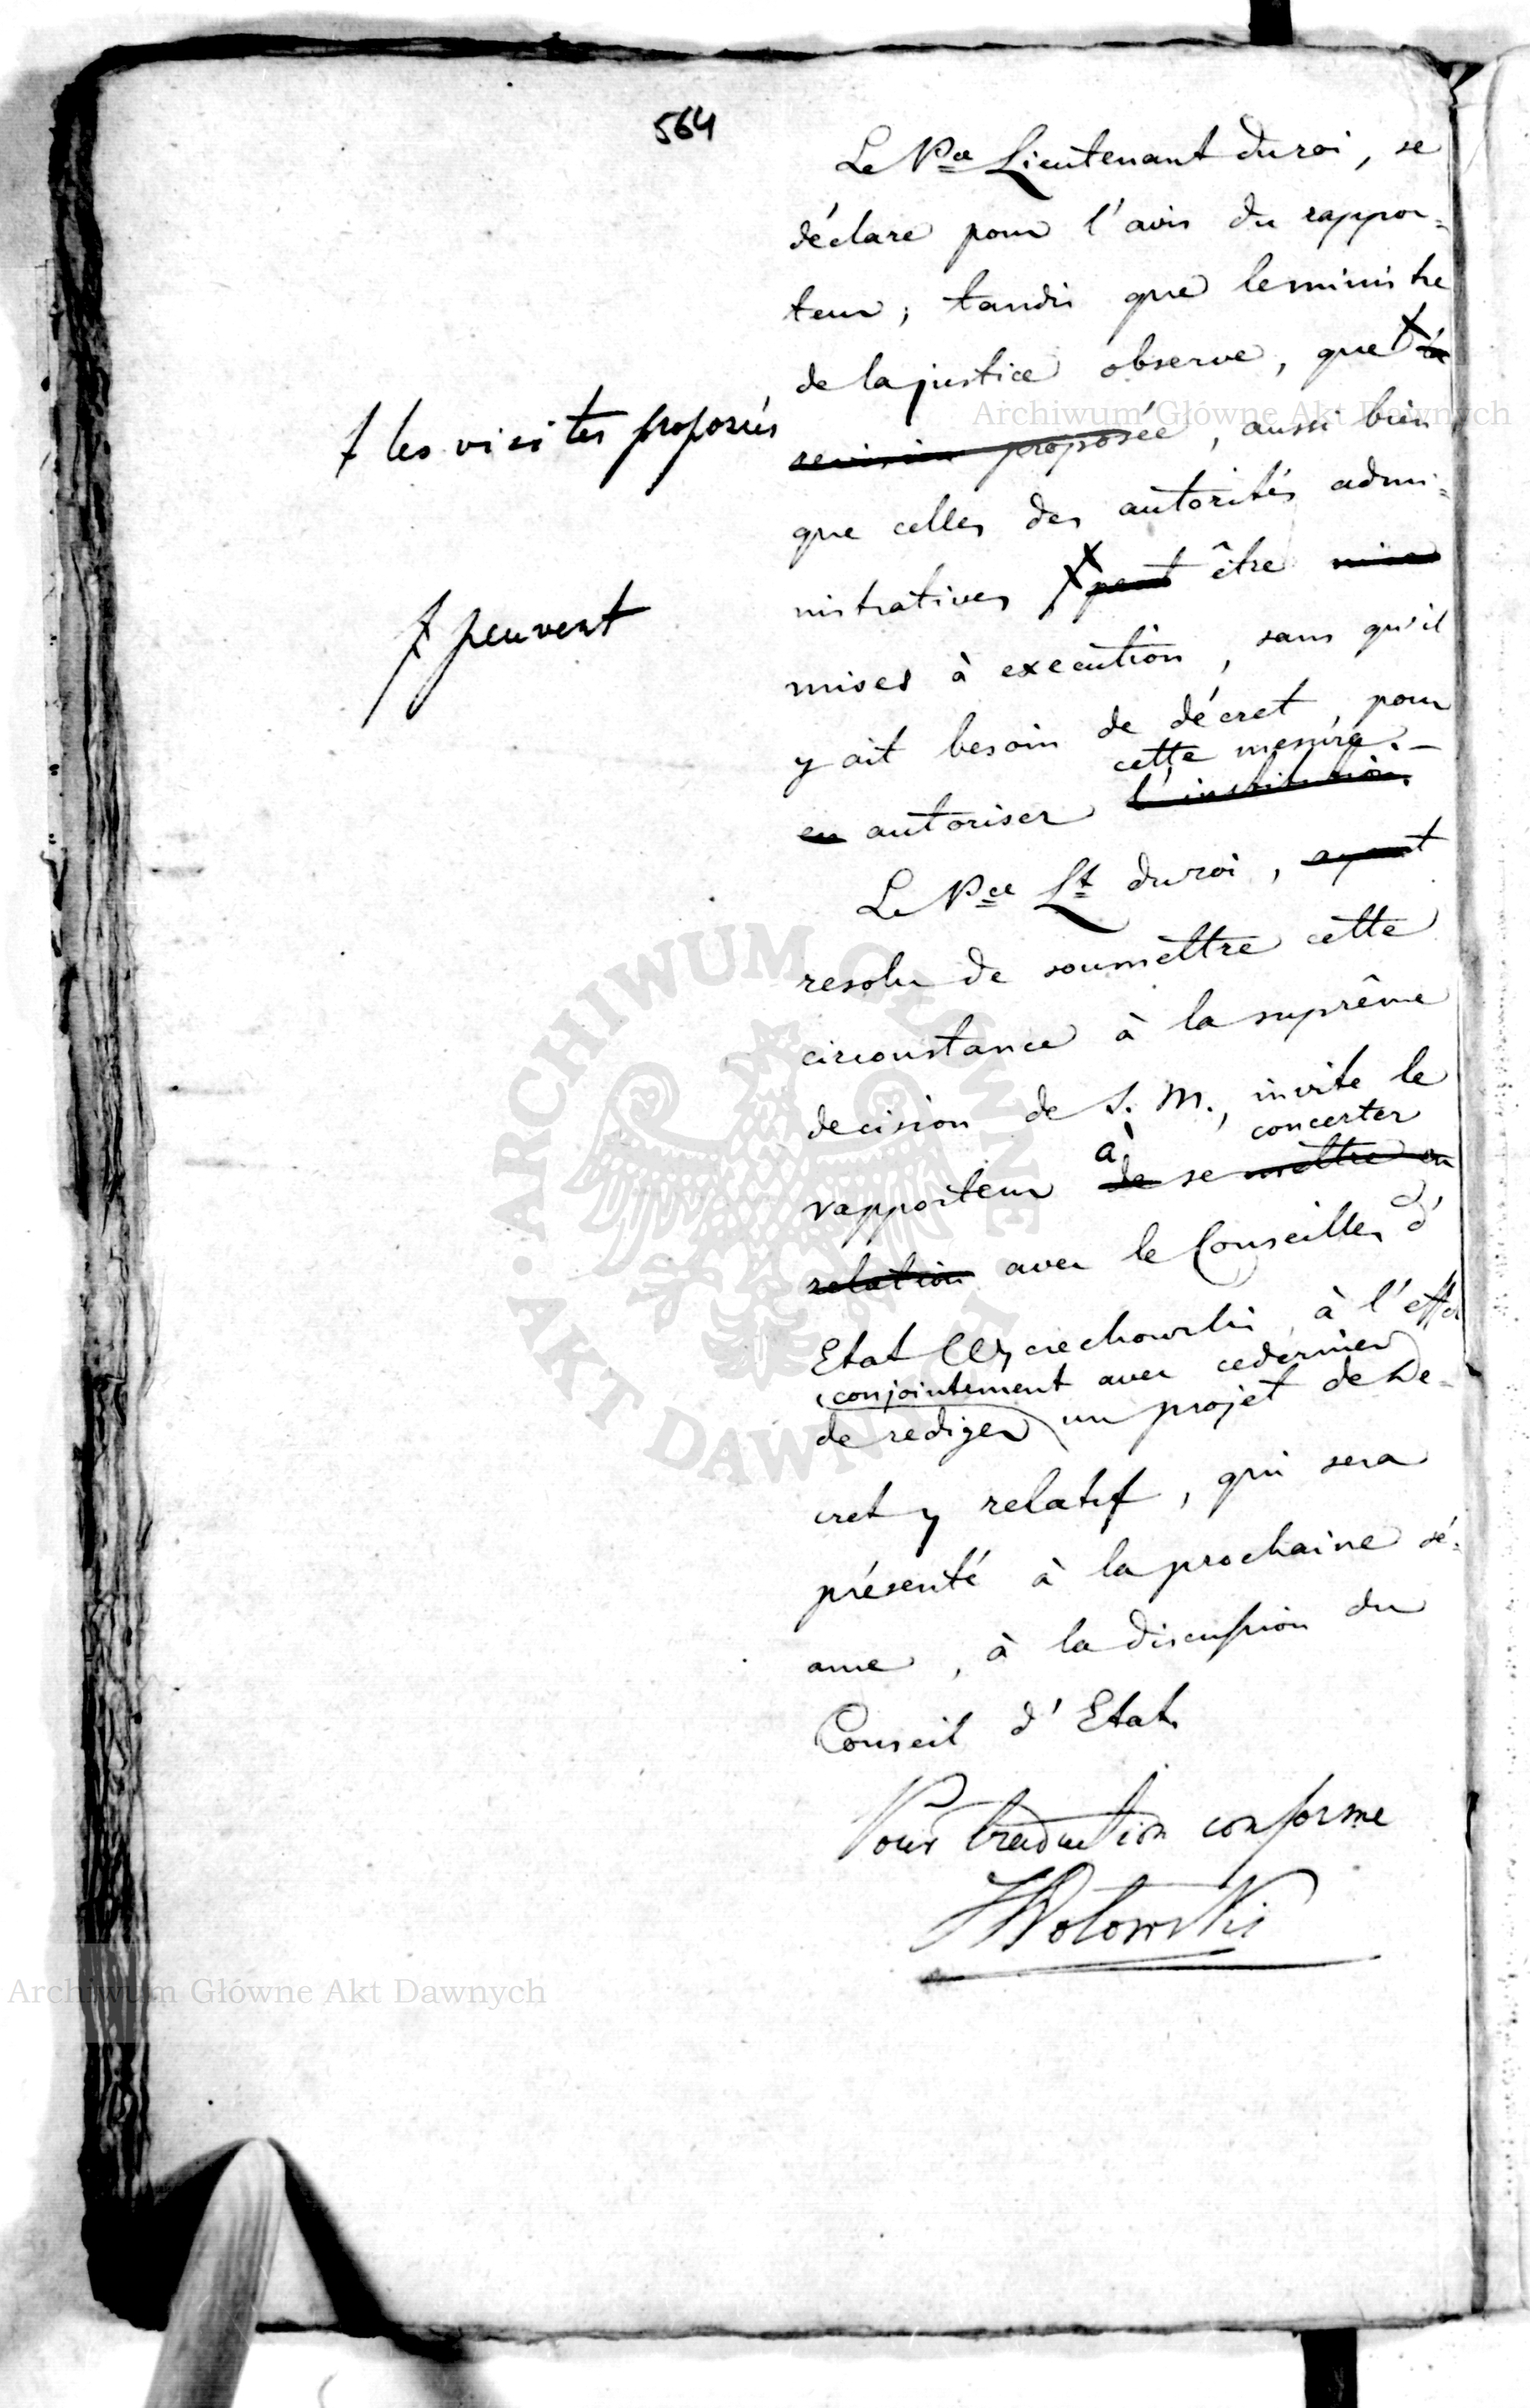 564
Le Pce Lieutenant du roi, se
déclare pour l'avis du rappor=
teur; tandis que le ministre
de la justice observe, que X la
revision proposée, aussi bien
ꝉ les visites proposées
que celles des autorités admi=
nistratives X peut être mise
ꝉ peuvent
mises à execution, sans qu'il
y ait besoin de décret, pour
cette mesure.—
en autoriser l'institution.
Le Pce Lt du roi, ayant
resolu de soumettre cette
circonstance à la suprême
decision de S. M., invite le
à concerter
rapporteur de se mettre en
relation avec le Conseiller d'
Etat Węgrzechowski, à l'effet
conjointement avec ce dernier
de rediger un projet de De=
cret y relatif, qui sera
présenté à la prochaine sé=
ance, à la discussion du
Conseil d'Etat
Pour traduction conforme
Wołowski
Archiwum Główne Akt Dawnych
ARCHIWUM GŁÓWNE AKT DAWNYCH
Archiwum Główne Akt Dawnych